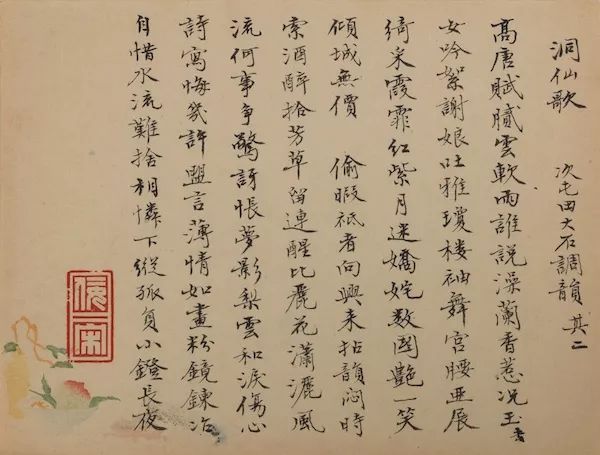 洞仙歌 次屯田大石調韻 其二
高唐賦膩雲軟雨誰說澡蘭香惹況玉書
女吟絮謝娘吐雅瓊楼袖舞宮腰亞展
綺采霞霏紅紫月迷嬌姹数國艶一笑
傾城無價 偷暇祇者向興来拈韻悶時
索酒醉拾芳草留連醒比麗花瀟灑風
流何事争驚訝悵夢影梨雲和淚傷心
詩寫悔幾許盟言薄情如畫粉鏡鍊冶
自惜水流難捨相憐下縱孤負小鐙長夜